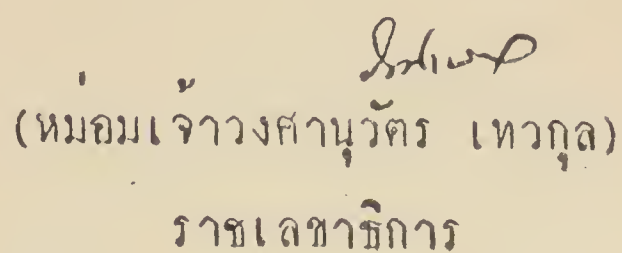 (หม่อมเจ้าวงศานุวัตร เทวกุล)
ราชเลขาธิการ